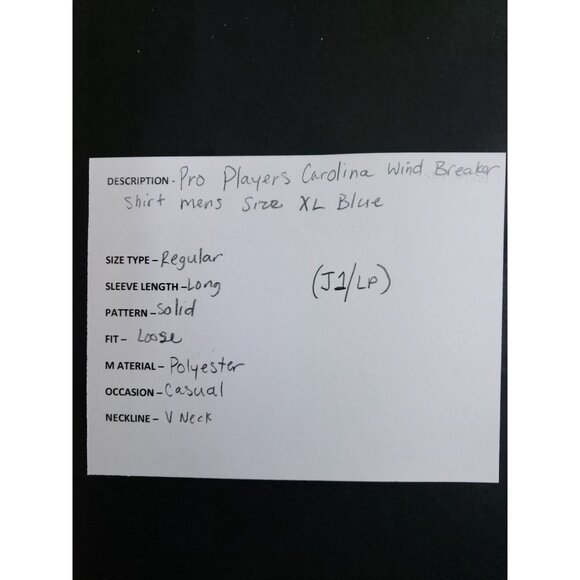 DESCRIPTION - Pro Players Carolina Wind Breaker
Shirt mens Size XL Blue
SIZE TYPE - Regular
SLEEVE LENGTH - Long
(J1/LP)
PATTERN - Solid
FIT - Loose
MATERIAL - Polyester
OCCASION - Casual
NECKLINE - V Neck